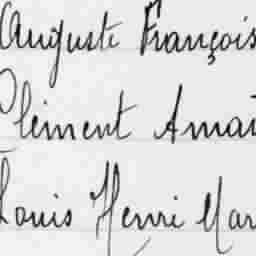 Auguste François
Clément Amat
Louis Henri Mar